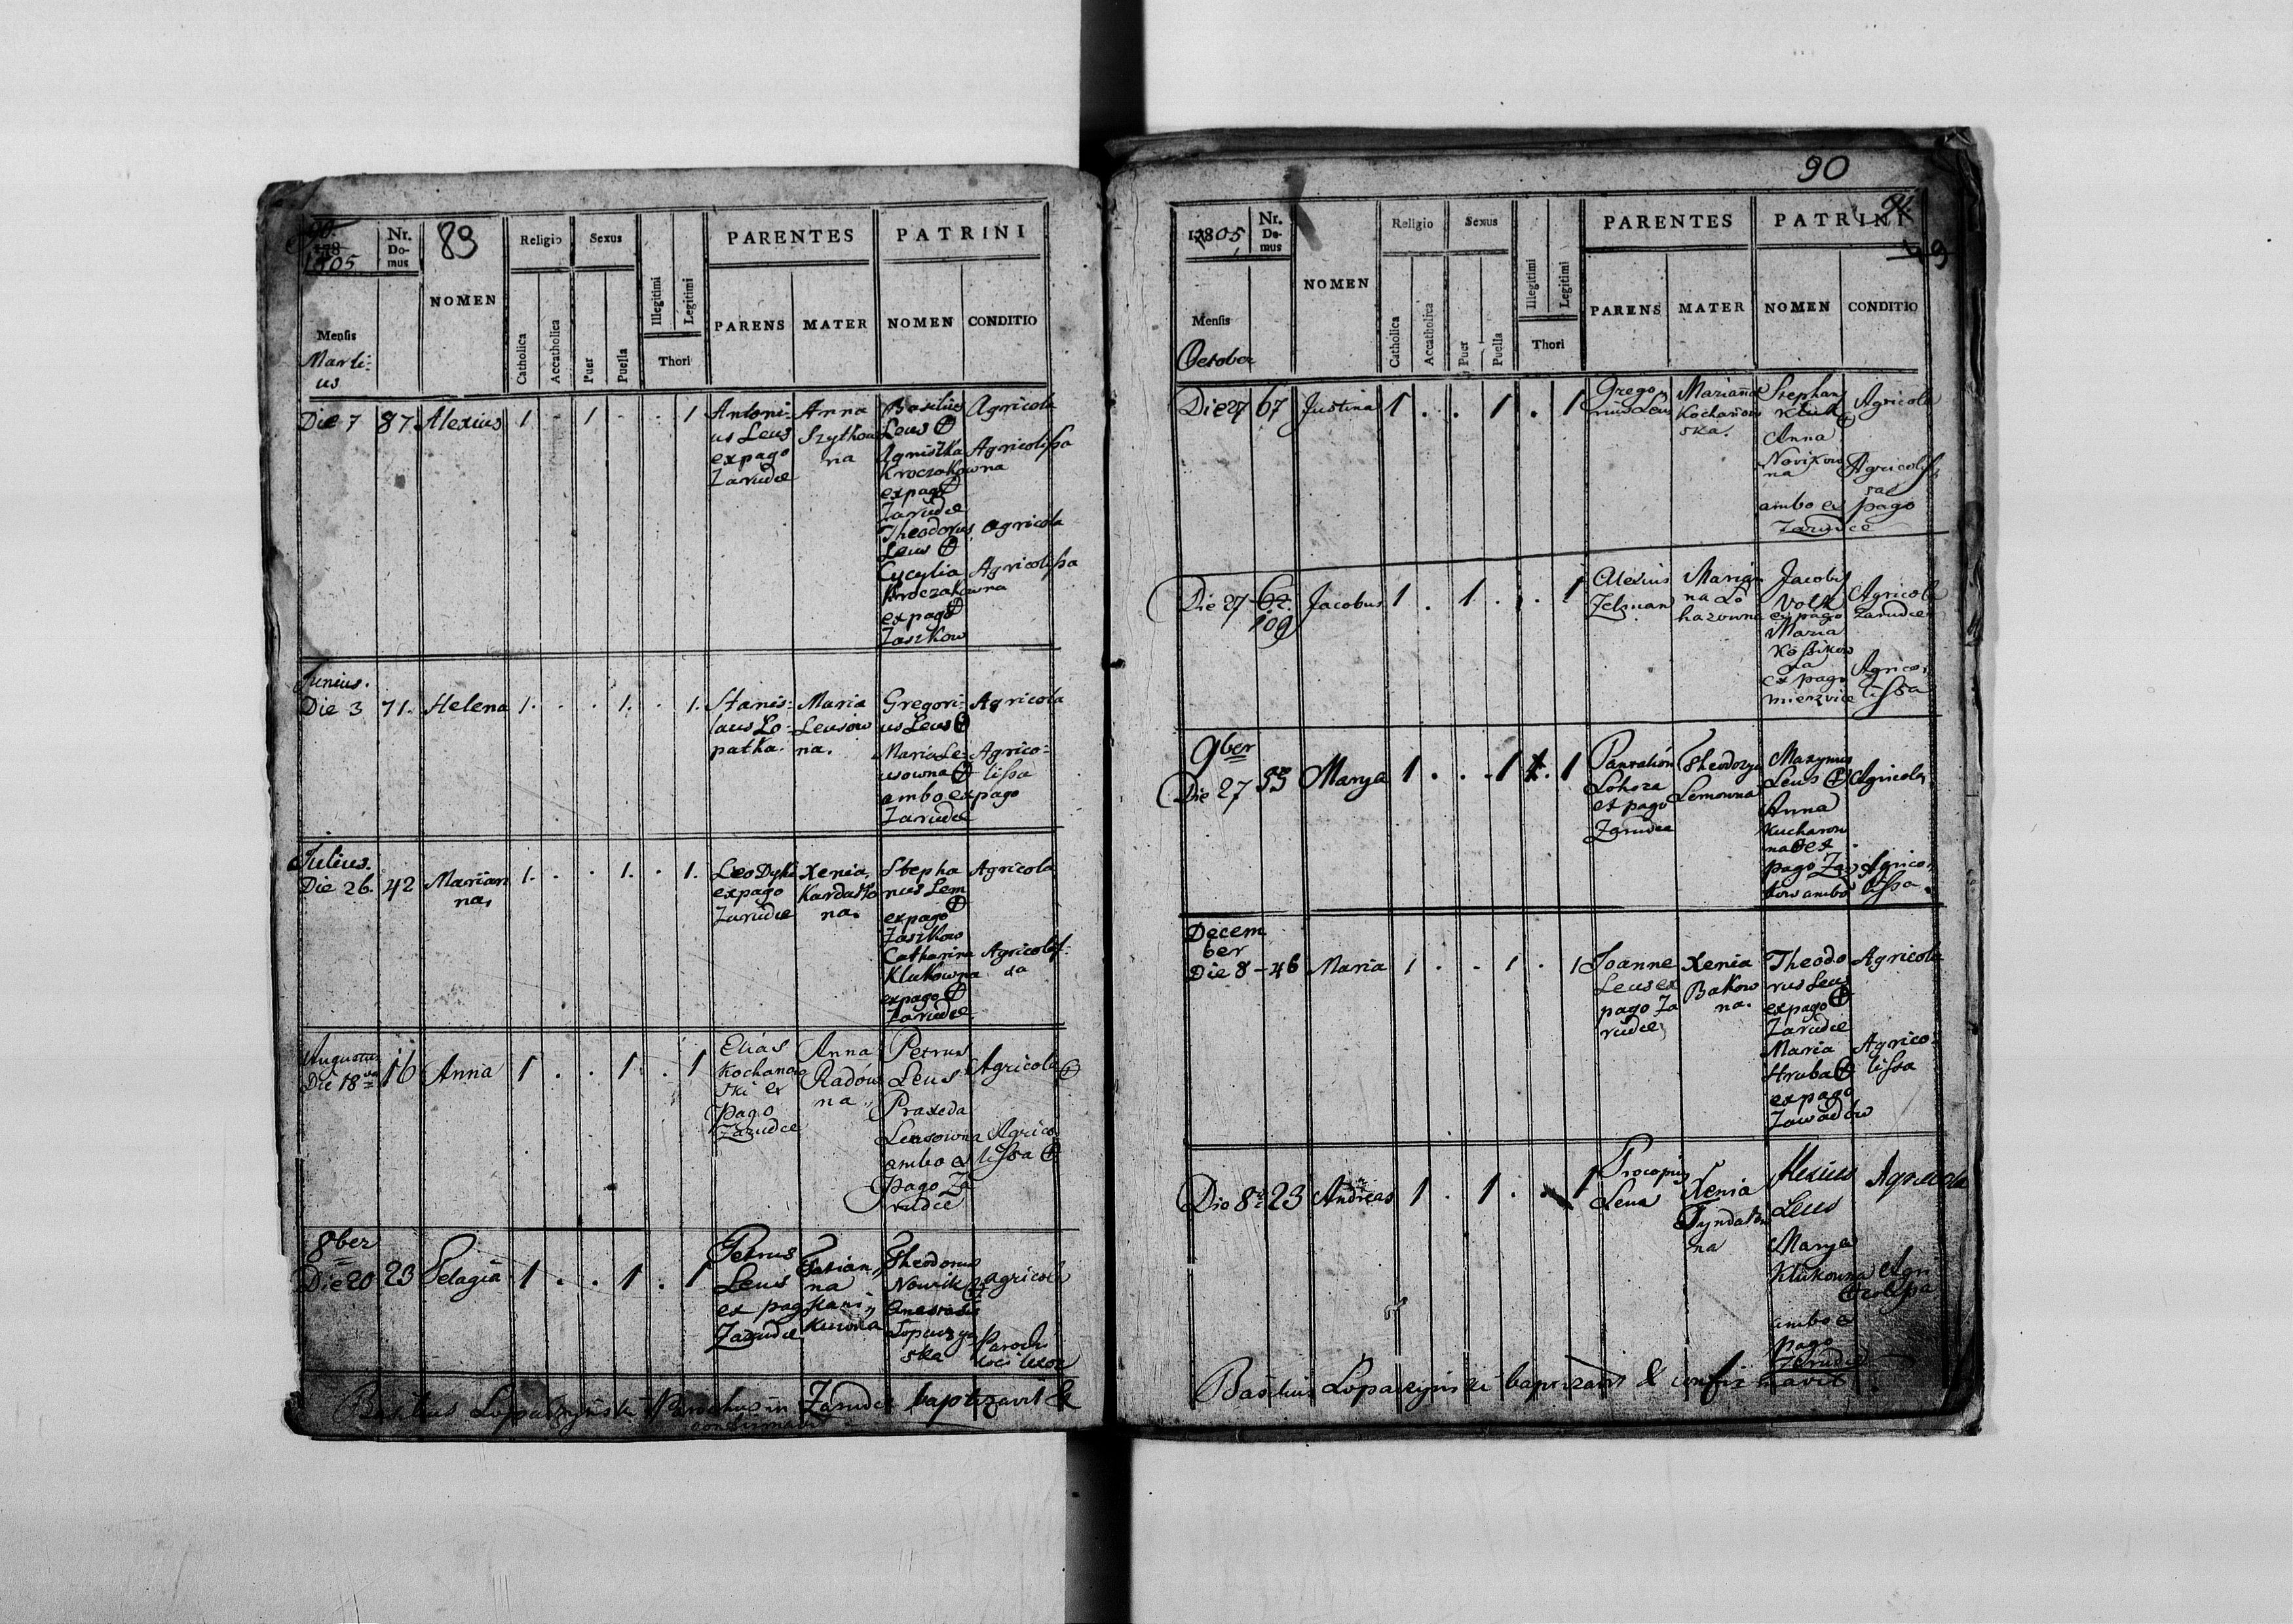 90.
178
1805
Nr. Domus
89
NOMEN
Religio
Sexus
Catholica
Accatholica
Puer
Puella
Illegitimi
Legitimi
Thori
PARENTES
PATRINI
PARENS
MATER
NOMEN
CONDITIO
Mensis
Marti-
us
Die 7 87 Alexius 1 - 1 - . 1
Antoni-
us Leus
ex pago
Zarudce
Anna
Szytkow
na
Basilius
Leus
Agniszka
Kroczakowna
ex pago
Zarudce
Theodorus
Leus
Cycylia
Kroczakowna
ex pago
Zaszkow
Agricola
Agricolissa
Agricola
Agricolissa
Junius.
Die 3 71. Helena 1. . . 1. . 1.
Stanis-
laus Lo-
patka.
Maria
Leusow
na.
Gregori-
us Leus
Maria Le-
usowna
ambo ex pago
Zarudce
Agricola
Agrico-
lissa
Julius.
Die 26. 42 Marian
na. 1. . . 1. . 1.
Leo Dyki
ex pago
Zarudce
Xenia
Kardaszo
na.
Stepha
nus Lem
ex pago
Zaszkow
Catharina
Klukowna
ex pago
Zarudce
Agricola
Agricolis-
sa
Augustus
Die 18 16 Anna 1 . . 1 . 1
Elias
Kochanow
ski ex
pago
Zarudce
Anna
Radów
na
Petrus
Leus
Praxeda
Leusowna
ambo ex
pago Za
rudce
Agricola
Agrico
lissa
8ber
Die 20 23 Pelagia 1 . . 1 . 1
Petrus
Leus
ex pago
Zarudce
Tatian
na
Theodorus
Nowik
Anastasia
Lopaczyn
ska
Agricola
Parochi
loci uxor
Basilius Lopaczyński Parochus in Zarudce baptizavit &
confirmavit
90
1805
Nr. Domus
NOMEN
Religio
Sexus
Catholica
Accatholica
Puer
Puella
Illegitimi
Legitimi
Thori
PARENTES
PATRINI
49
PARENS
MATER
NOMEN
CONDITIO
Mensis
October
Die 27 67 Justina 1 . . 1 . 1
Grego
rius Leus
Marianna
Kochanow
ska.
Stephan
Kluk
Anna
Novikow
na
ambo ex pago
Zarudce
Agricola
Agricolis
sa
Die 27 62.
109
Jacobus 1 . 1 . . 1
Alexius
Zelman
Marian
na Lo
hazowna
Jacobus
Volk
ex pago
Maria
Kossikow
na
ex pago
mierzvice
Agricola
Zarudce
Agrico
lissa
9ber
Die 27 53 Marya 1 . . 1 . 1
Pantalion
Lohoza
ex pago
Zarudce
Theodozya
Lemowna
Maxymus
Leus
Anna
Kucharow
na ex
pago Zas
kow ambo
Agricola
Agrico
lissa.
Decem
ber
Die 8 - 46 Maria 1 . . 1 . 1
Joanne
Leus ex
pago Za
rudce
Xenia
Bakow
na.
Theodo
rus Leus
ex pago
Zarudce
Maria
Hruba
ex pago
Zawadów
Agricola
Agrico-
lissa
Die 8 23 Andreas 1 . 1 . . 1
Procopius
Leus
Xenia
Alexius
Leus
Marya
Klukowna
ambo ex
pago
Zarudce
Agricola
Agri
colissa
Basilius Lopaczyński baptizavit & confirmavit